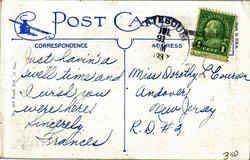 POST CARD
CORRESPONDENCE
ADDRESS
Just havin' a
swell time and
I wish you
were here
Sincerely
Frances
Miss Dorothy L
Andover
New Jersey
R.D. #3
350